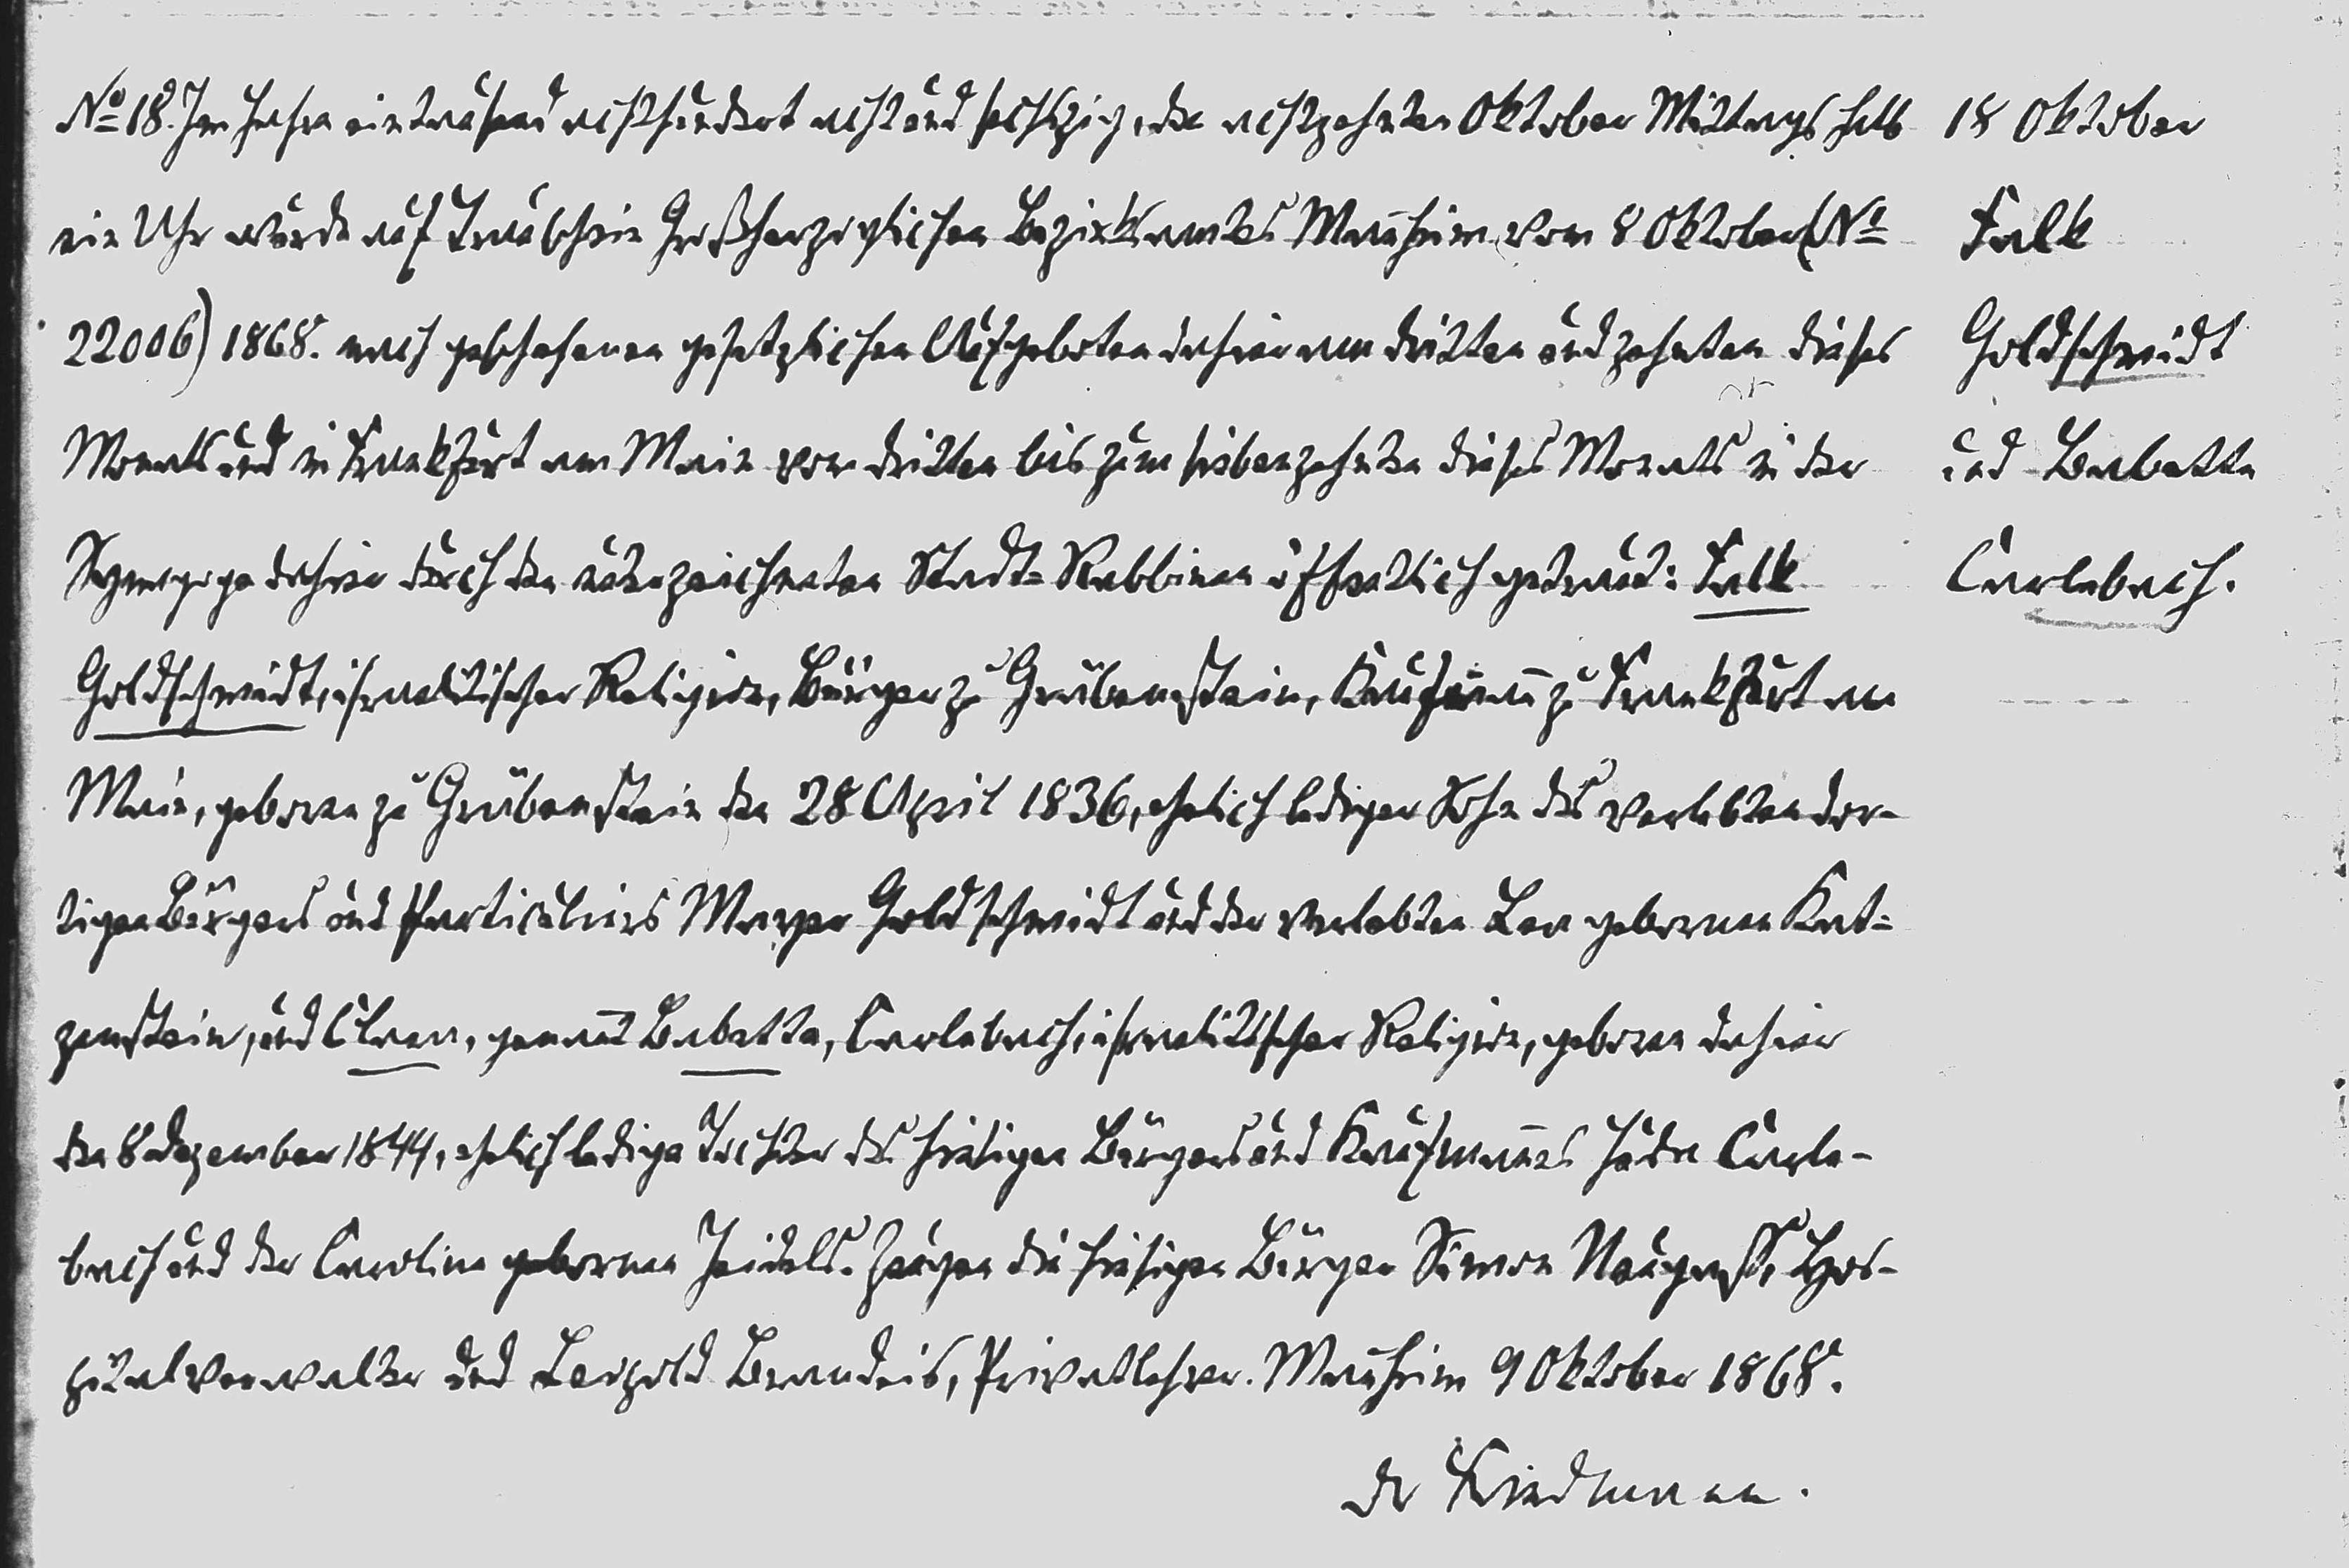 № 18. Im Jahre eintausend achthundert acht und sechszig, den achtzehnten Oktober Mittags halb
ein Uhr wurde auf Trauschein Großherzoglichen Bezirksamtes Mañheim vom 8 Oktober (№
22006) 1868. nach geschehenen gesetzlichen Aufgeboten dahier am dritten und zehnten dieses
Monats und in Frankfurt am Main vom dritten bis zum siebenzehnten dieses Monats in der
Synagoge dahier durch den unterzeichneten Stadt=Rabbinen öffentlich getraut: Falk
Goldschmidt, israelitischer Religion, Bürger zu Grebenstein, Kaufmañ zu Frankfurt am
Main, geboren zu Grebenstein den 28 April 1836, ehelich lediger Sohn des verlebten dor-
tigen Bürgers und Particuliers Meyer Goldschmidt und der verlebten Lea gebornen Kat=
zenstein, und Clara, genañt Babette, Carlebach, israelitischer Religion, geboren dahier
den 8 Dezember 1844, ehelich ledige Tochter des hiesigen Bürgers und Kaufmañes Juda Carle-
bach und der Caroline gebornen Zeidels. Zeugen die hiesigen Bürger Simon Neugaß, Hos-
pitalverwalter und Leopold Brandeis, Privatlehrer. Mañheim 9 Oktober 1868.
Dr Friedmann.
18 Oktober
Falk
Goldschmidt
und Babette
Carlebach.